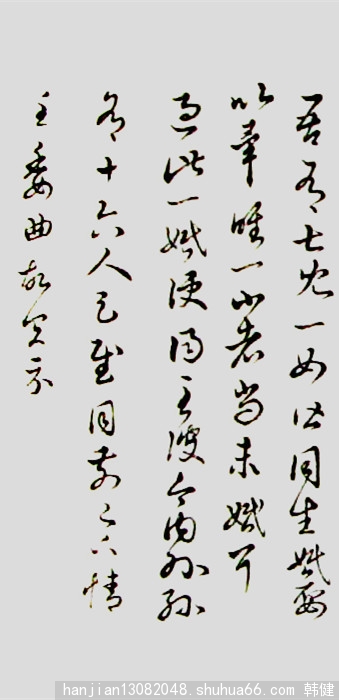 吾有七兒一女皆同生婚娶
以畢唯一小者尚未婚耳
過此一婚便得至彼今內外孫
有十六人足慰目前足下情
至委曲故具示
hanjian13082048.shuhua66.com 韩健